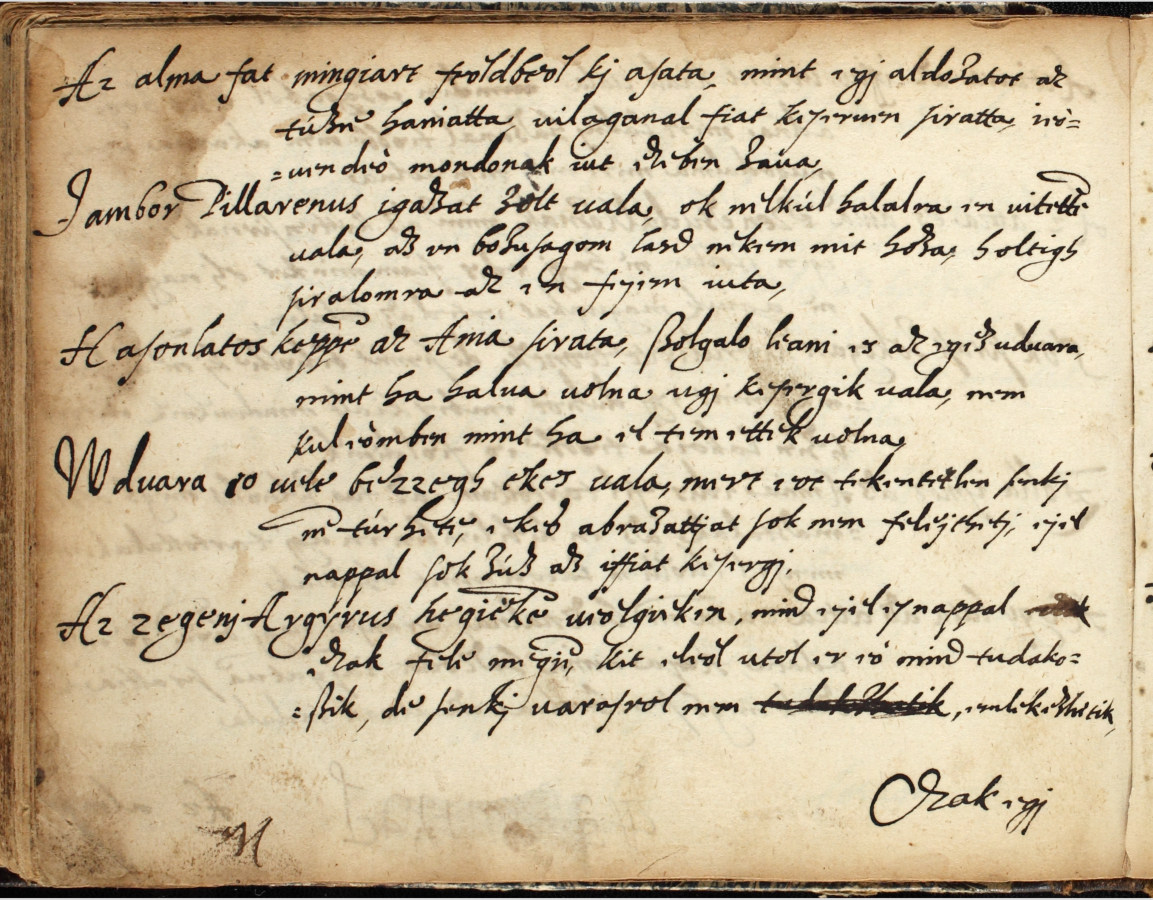 Az alma fat mingiart feoldbeol kj asata, mint egj aldoʒatot aʒ
túʒre haniatta, vilaganal fiat keserven siratta, ieö=
=vendeö mondonak iut eʒeben ʒava,
Jambor Pillarenus jgaʒat ʒolt vala, ok nelkúl halalra en vitette
vala, aʒ en boʒusagom lasd nekem mit hoʒa, holtigh
siralomra aʒ en fejem iuta,
Hasonlatos keppe aʒ Ania sirata, ßolgalo leani es aʒ egeʒ udvara,
mint ha halva volna ugj kesergik vala, nem
kuleömben mint ha el temettek volna,
Wduara eo vele bezzegh ekes vala, mert eot tekentetlen senkj
ne túrheti, ekes abraʒattjat sok nem felejtheti, ejel
nappal sok ʒúʒ aʒ iffiat kesergj,
Az zegenj Argyrus hegieke veolgieken, mind ejel es nappal
cʒak fele megie, kit eleol utol er eö mind tudako=
=ßik, de senkj varasrol nem tudakoʒhatik, emlekeʒhetik,
Cʒak egj